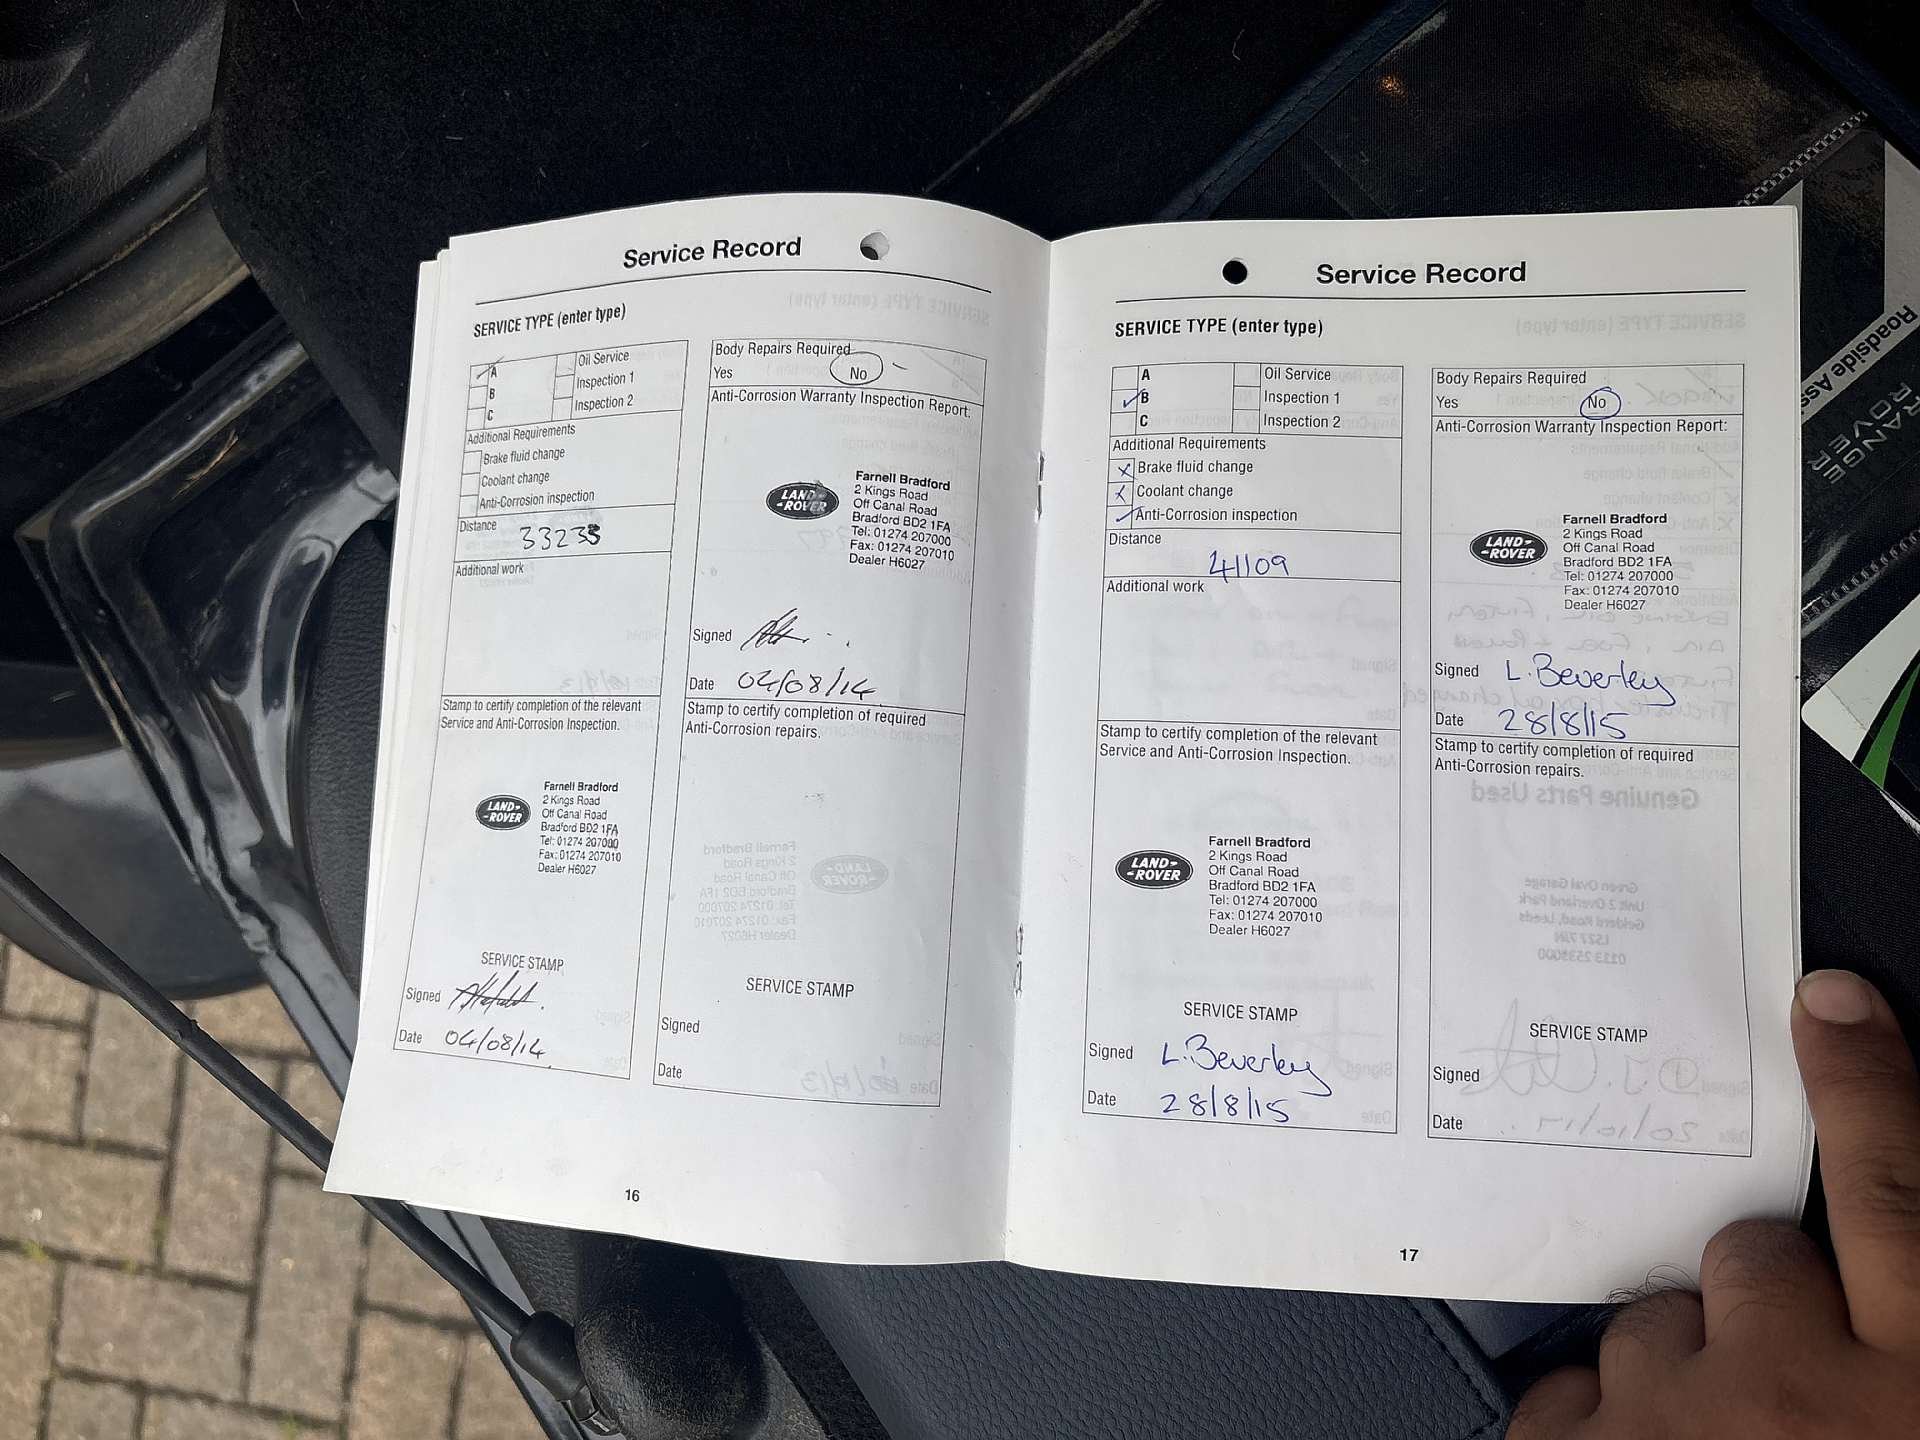 Service Record
SERVICE TYPE (enter type)
A
B
C
Oil Service
Inspection 1
Inspection 2
Additional Requirements
Brake fluid change
Coolant change
Anti-Corrosion inspection
Distance
33235
Additional work
Stamp to certify completion of the relevant
Service and Anti-Corrosion Inspection.
LAND-
-ROVER
Farnell Bradford
2 Kings Road
Off Canal Road
Bradford BD2 1FA
Tel: 01274 207000
Fax: 01274 207010
Dealer H6027
SERVICE STAMP
Signed
Date 04/08/14
Body Repairs Required
Yes No
Anti-Corrosion Warranty Inspection Report:
LAND-
-ROVER
Farnell Bradford
2 Kings Road
Off Canal Road
Bradford BD2 1FA
Tel: 01274 207000
Fax: 01274 207010
Dealer H6027
Signed
Date 04/08/14
Stamp to certify completion of required
Anti-Corrosion repairs.
SERVICE STAMP
Signed
Date
16
Service Record
SERVICE TYPE (enter type)
A
B
C
Oil Service
Inspection 1
Inspection 2
Additional Requirements
Brake fluid change
Coolant change
Anti-Corrosion inspection
Distance
41109
Additional work
Stamp to certify completion of the relevant
Service and Anti-Corrosion Inspection.
LAND-
-ROVER
Farnell Bradford
2 Kings Road
Off Canal Road
Bradford BD2 1FA
Tel: 01274 207000
Fax: 01274 207010
Dealer H6027
SERVICE STAMP
Signed L.Beverley
Date 28/8/15
Body Repairs Required
Yes No
Anti-Corrosion Warranty Inspection Report:
LAND-
-ROVER
Farnell Bradford
2 Kings Road
Off Canal Road
Bradford BD2 1FA
Tel: 01274 207000
Fax: 01274 207010
Dealer H6027
Signed L.Beverley
Date 28/8/15
Stamp to certify completion of required
Anti-Corrosion repairs.
SERVICE STAMP
Signed
Date
17
Roadside
RANGE
ROVER